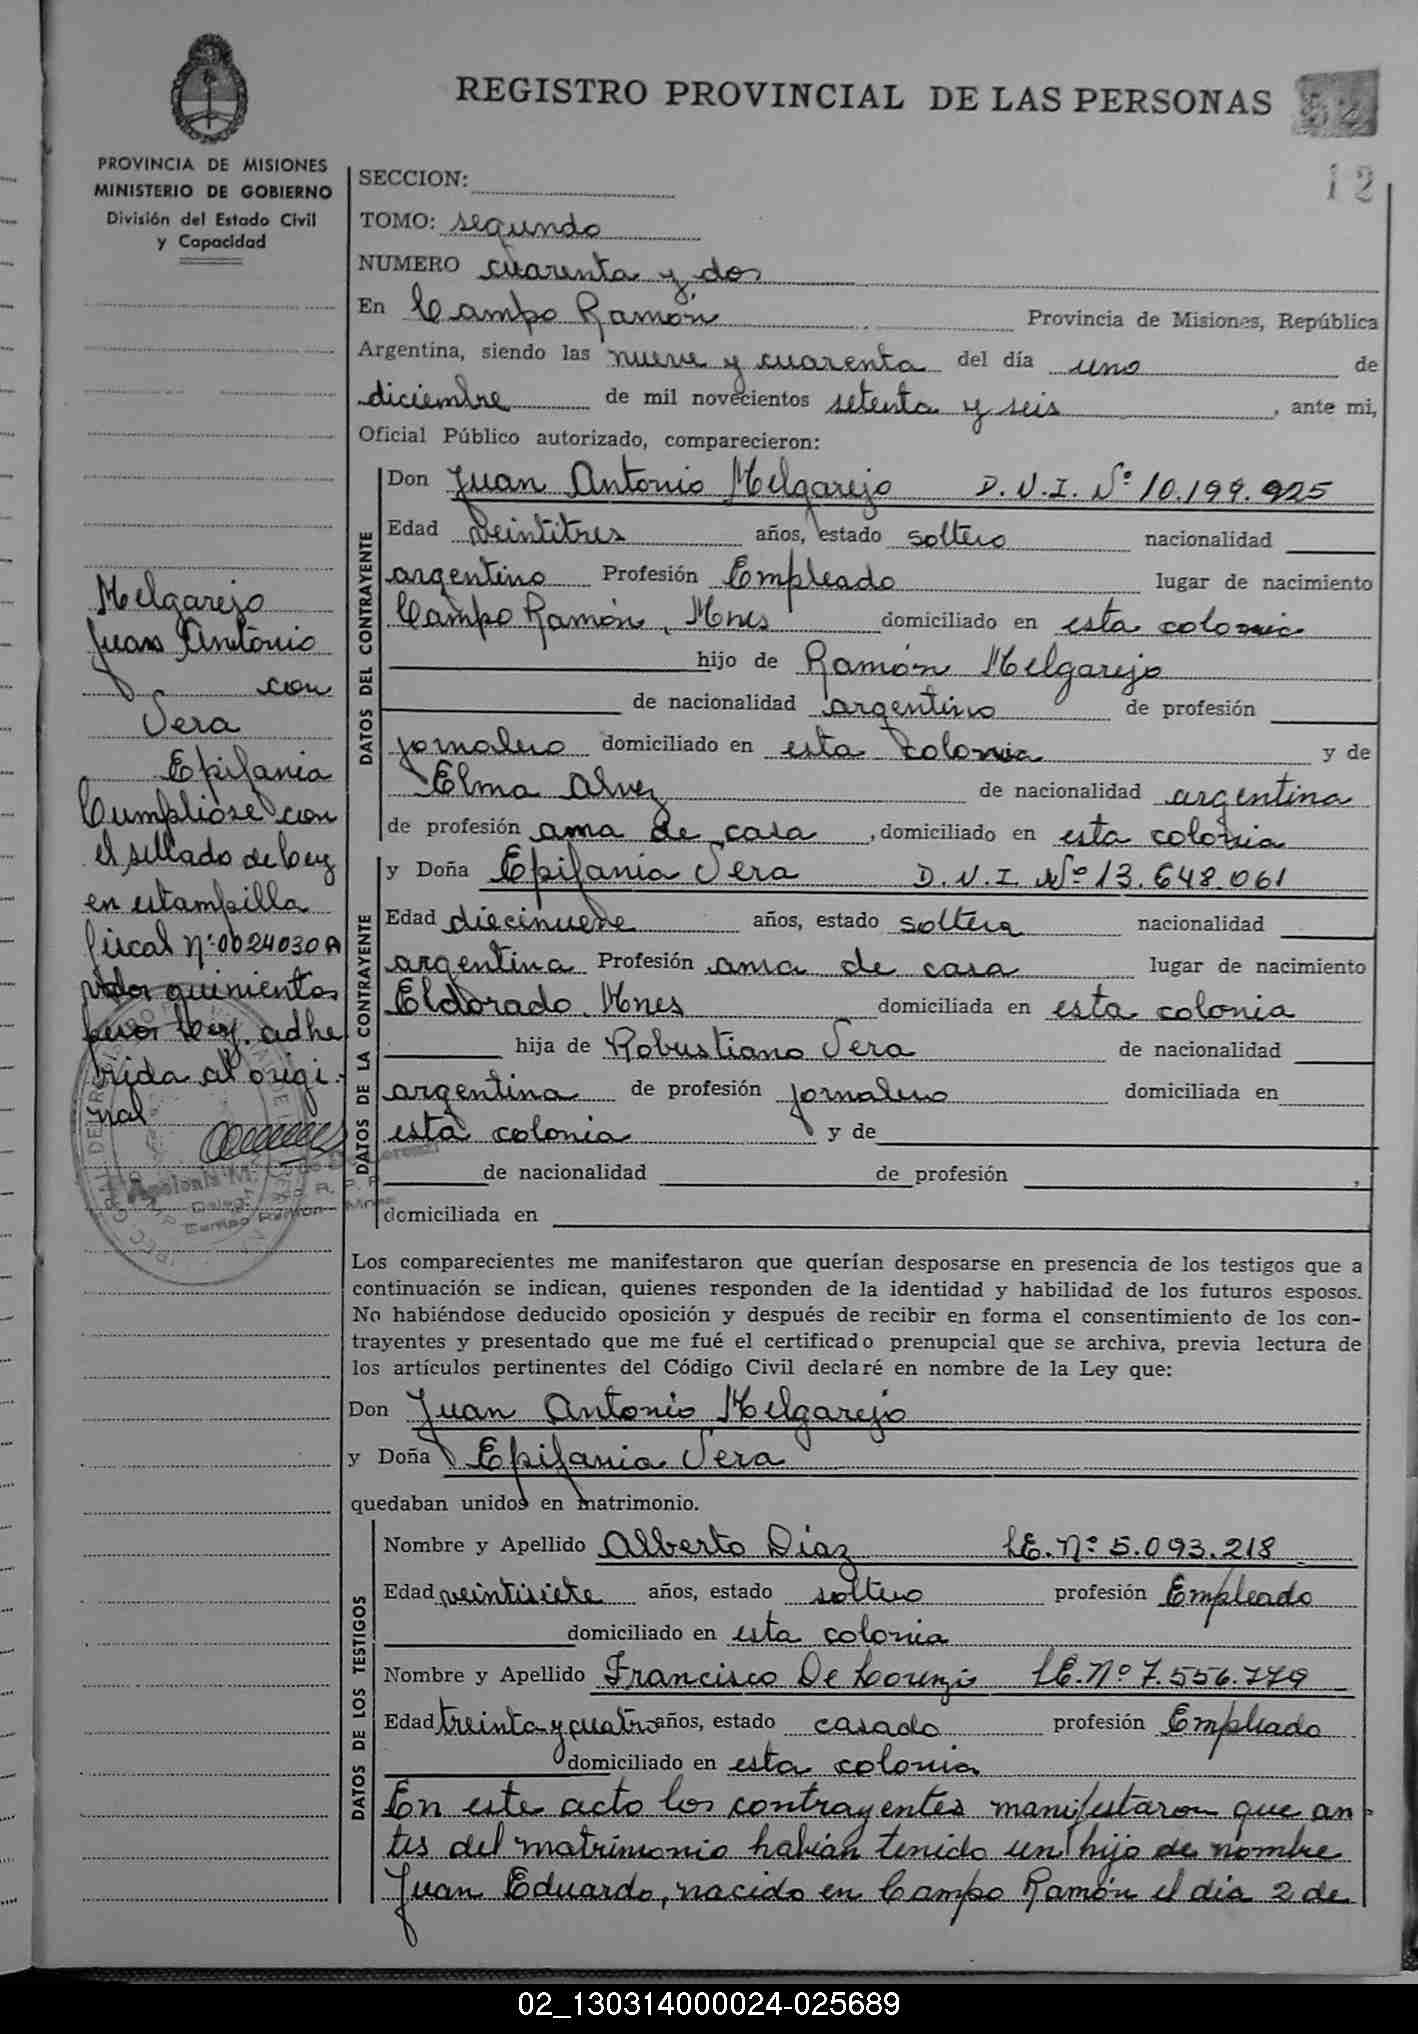 REGISTRO PROVINCIAL DE LAS PERSONAS
12
PROVINCIA DE MISIONES
MINISTERIO DE GOBIERNO
División del Estado Civil
y Capacidad
SECCION:
TOMO: segundo
NUMERO cuarenta y dos
En Campo Ramón Provincia de Misiones, República
Argentina, siendo las nueve y cuarenta del día uno de
diciembre de mil novecientos setenta y seis, ante mi,
Oficial Público autorizado, comparecieron:
DATOS DEL CONTRAYENTE
Don Juan Antonio Melgarejo D.N.I. Nº 10.199.925
Edad veintitres años, estado soltero nacionalidad
argentino Profesión Empleado lugar de nacimiento
Campo Ramón, Mnes domiciliado en esta colonia
hijo de Ramón Melgarejo
de nacionalidad argentino de profesión
jornalero domiciliado en esta colonia y de
Elma Alvez de nacionalidad argentina
de profesión ama de casa, domiciliado en esta colonia
DATOS DE LA CONTRAYENTE
y Doña Epifania Vera D.N.I. Nº 13.648.061
Edad diecinueve años, estado soltera nacionalidad
argentina Profesión ama de casa lugar de nacimiento
Eldorado. Mnes domiciliada en esta colonia
hija de Robustiano Vera de nacionalidad
argentina de profesión jornalero domiciliada en
esta colonia y de
de nacionalidad de profesión ,
domiciliada en
Melgarejo
Juan Antonio
con
Vera
Epifania
Cumplióse con
el sellado de ley
en estampilla
fiscal Nº 0024030A
valor quinientos
pesos ley. adhe
rida al origi-
nal
Campo Ramón - Mnes
Los comparecientes me manifestaron que querían desposarse en presencia de los testigos que a
continuación se indican, quienes responden de la identidad y habilidad de los futuros esposos.
No habiéndose deducido oposición y después de recibir en forma el consentimiento de los con-
trayentes y presentado que me fué el certificado prenupcial que se archiva, previa lectura de
los artículos pertinentes del Código Civil declaré en nombre de la Ley que:
Don Juan Antonio Melgarejo
y Doña Epifania Vera
quedaban unidos en matrimonio.
DATOS DE LOS TESTIGOS
Nombre y Apellido Alberto Diaz LE. Nº 5.093.218
Edad veintisiete años, estado soltero profesión Empleado
domiciliado en esta colonia
Nombre y Apellido Francisco De Lorenzi LE. Nº 7.556.779
Edad treinta y cuatro años, estado casado profesión Empleado
domiciliado en esta colonia
En este acto los contrayentes manifestaron que an-
tes del matrimonio habían tenido un hijo de nombre
Juan Eduardo, nacido en Campo Ramón el día 2 de
02_130314000024-025689